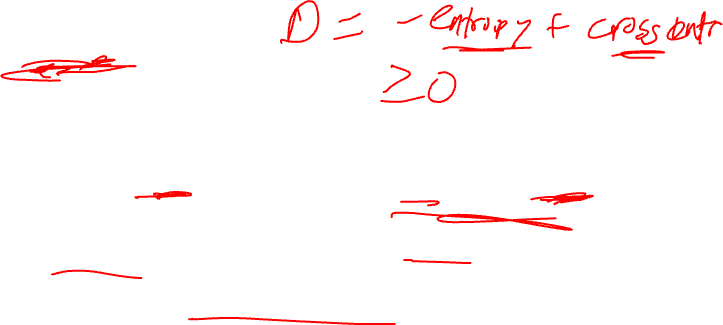 D = - entropy + cross entr
≥ 0